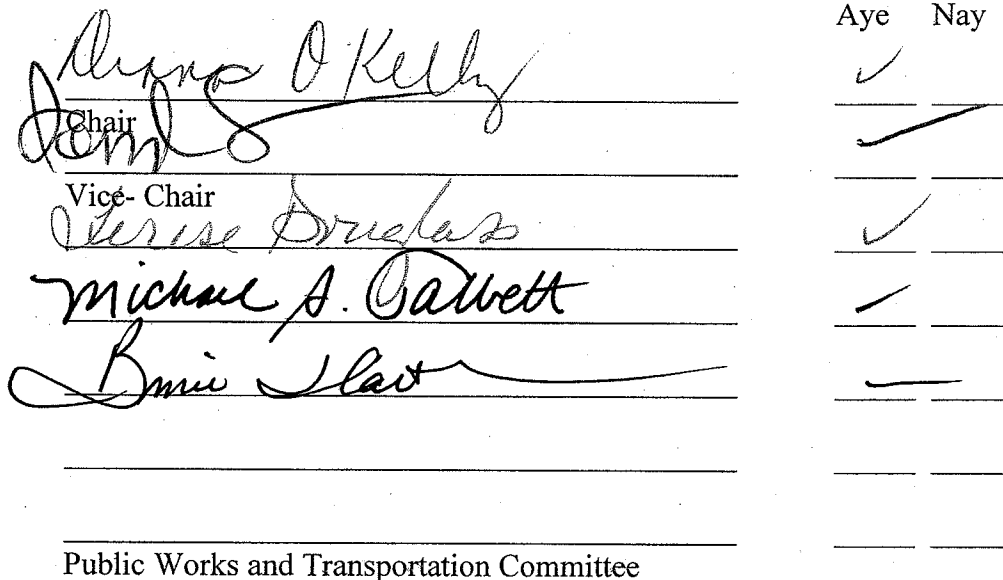 Aye Nay
Dianna O'Kelly
Chair
Vice- Chair
Terese Douglass
Michael S. Talbett
Public Works and Transportation Committee